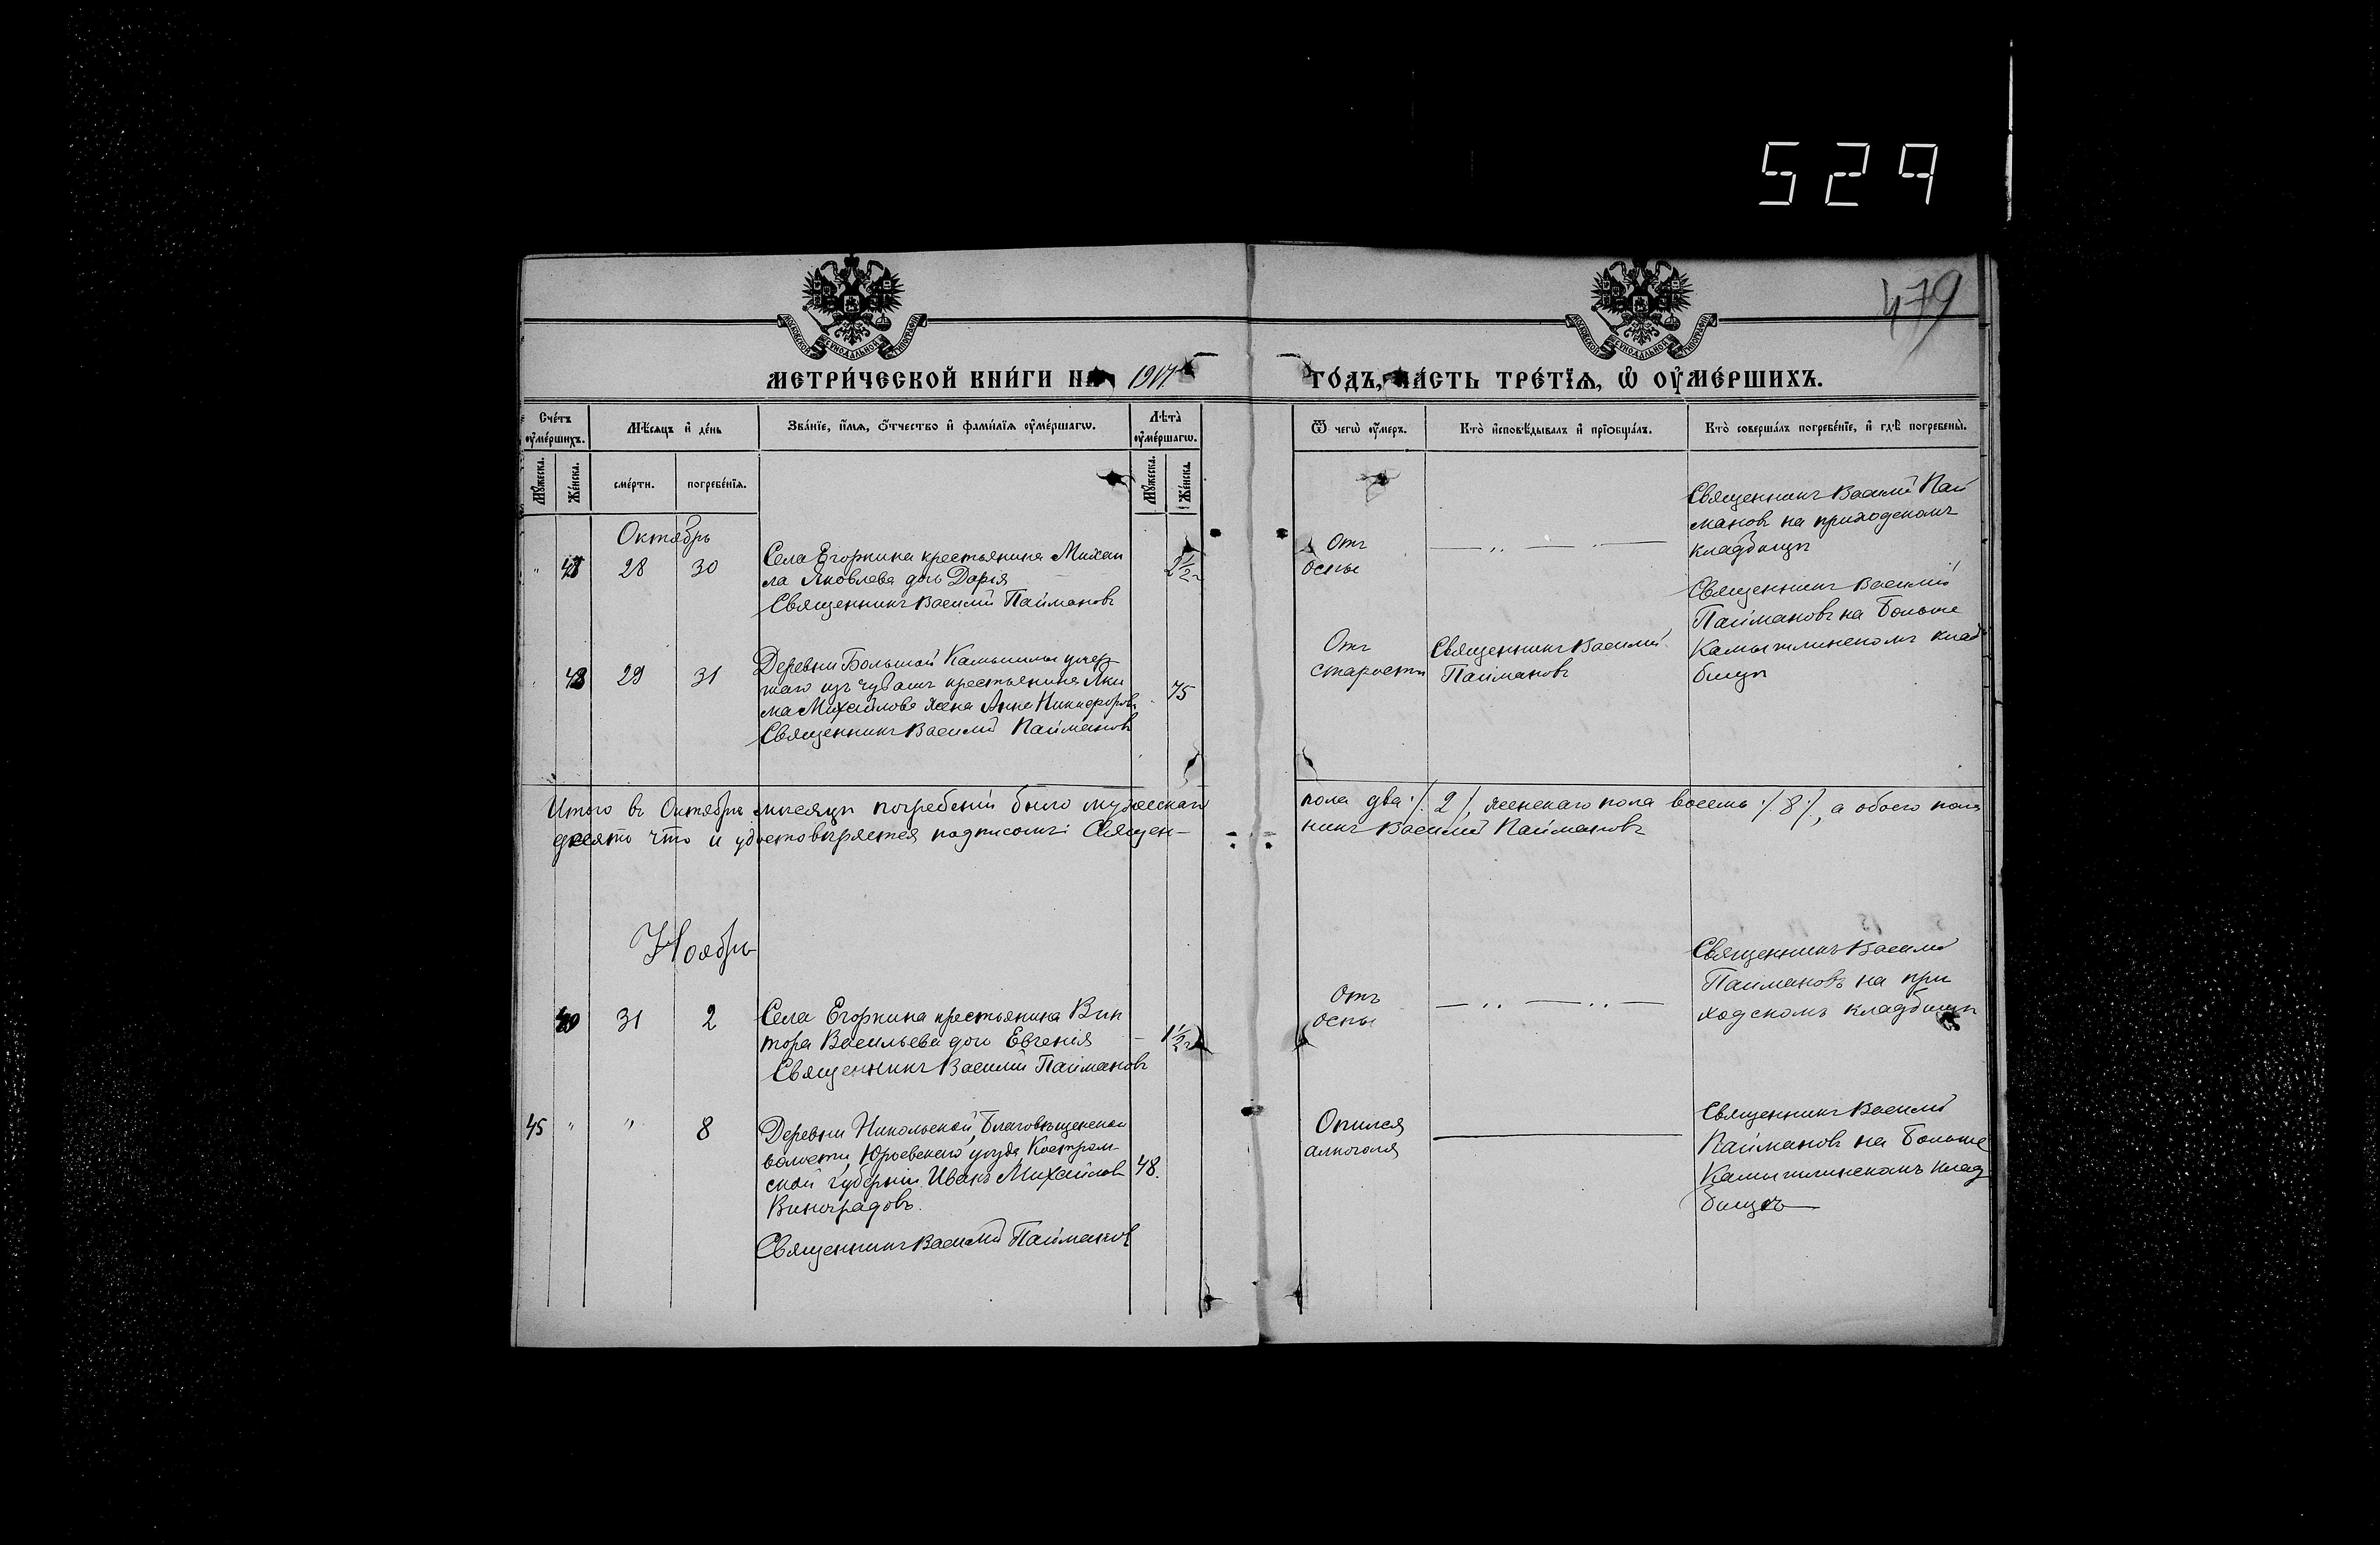 529
479
МОСКОВСКОЙ СѴНОДАЛЬНОЙ ТИПОГРАФІИ
МОСКОВСКОЙ СѴНОДАЛЬНОЙ ТИПОГРАФІИ
МЕТРИ́ЧЕСКОЙ КНИ́ГИ НА 1917
ГО́ДЪ, ЧА́СТЬ ТРЕ́ТІѦ, Ѡ҆ ОУ҆МЕ́РШИХЪ.
Сче́тъ оу҆ме́ршихъ.
Мѣ́сяцъ и҆ де́нь
Зва́ніе, и҆́мѧ, ѻ҆́тчество и҆ фами́лїѧ оу҆ме́ршагѡ.
Лѣта̀ оу҆ме́ршагѡ.
Ѿ чегѡ̀ оу҆́меръ.
Кто̀ и҆сповѣ́дывалъ и҆ прїѡбща́лъ.
Кто̀ соверша́лъ погребе́нїе, и҆ гдѣ̀ погребены̀.
Мꙋ́жеска.
Же́нска.
сме́рти.
погребе́нїѧ.
Мꙋ́жеска.
Же́нска.
Октябрь
" 28 30
Села Егоркина крестьянина Михаи
ла Яковлева дочь Дарія
Священникъ Василій Паймановъ
2½ г
Отъ
оспы
Священникъ Василій Пай
мановъ на приходскомъ
кладбищѣ
48 29 31
Деревни Большой Камышлы умер
шаго изъ чувашъ крестьянина Яки
ма Михайлова жена Анна Никифорова
Священникъ Василій Паймановъ
75
Отъ
старости
Священникъ Василій
Паймановъ
Священникъ Василій
Паймановъ на Больше
Камышлинскомъ клад
бищѣ
Итого въ Октябрѣ мѣсяцѣ погребеній было мужескаго
пола два ·/. 2 /, женскаго пола восемь ·/. 8 ·/., а обоего пола
десять что и удостовѣряется подписомъ: Священ-
никъ Василій Паймановъ
Ноябрь
31 2
Села Егоркина крестьянина Вик
тора Васильева дочь Евгенія
Священникъ Василій Паймановъ
1½ г
Отъ
оспы
Священникъ Василій
Паймановъ на при
ходскомъ кладбищѣ
45 " " 8
Деревни Никольской, Благовѣщенской
волости, Юрьевскаго уѣзда, Костром-
ской губерніи Иванъ Михайловъ
Виноградовъ.
Священникъ Василій Паймановъ
48.
Опился
алкоголя
Священникъ Василій
Паймановъ на Больше
Камышлинскомъ клад
бищѣ